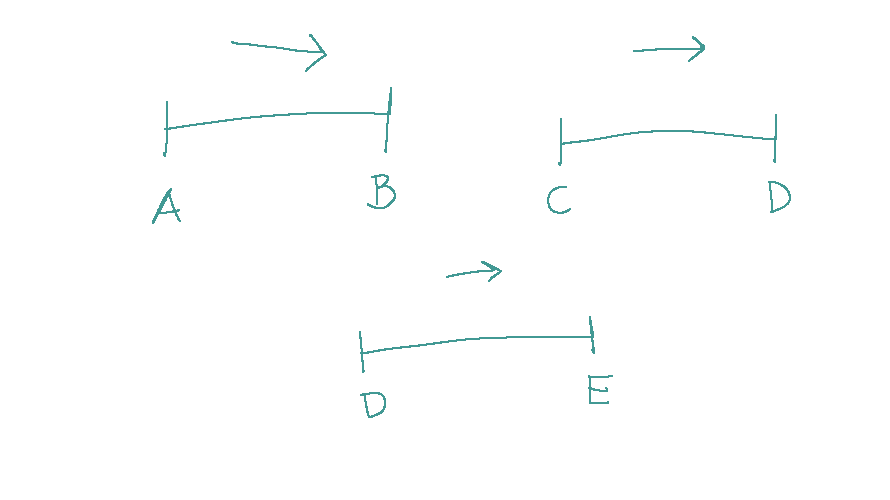 A B C D
D E